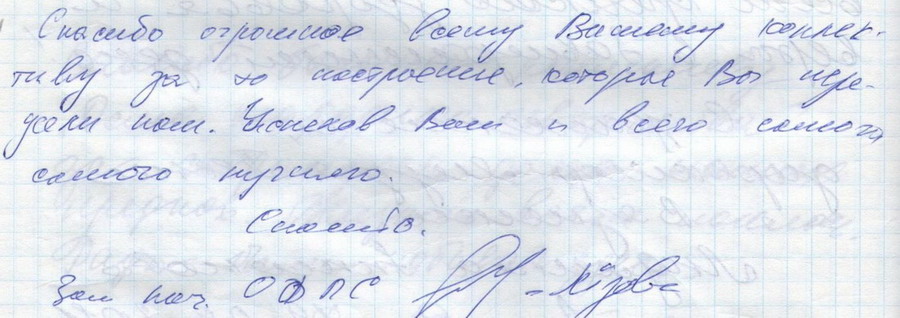 Спасибо огромное всему Вашему коллек-
тиву за то настроение, которые Вы пере-
дали нам. Успехов Вам и всего самого
самого лучшего.
Спасибо.
Зам нач. ОФПС